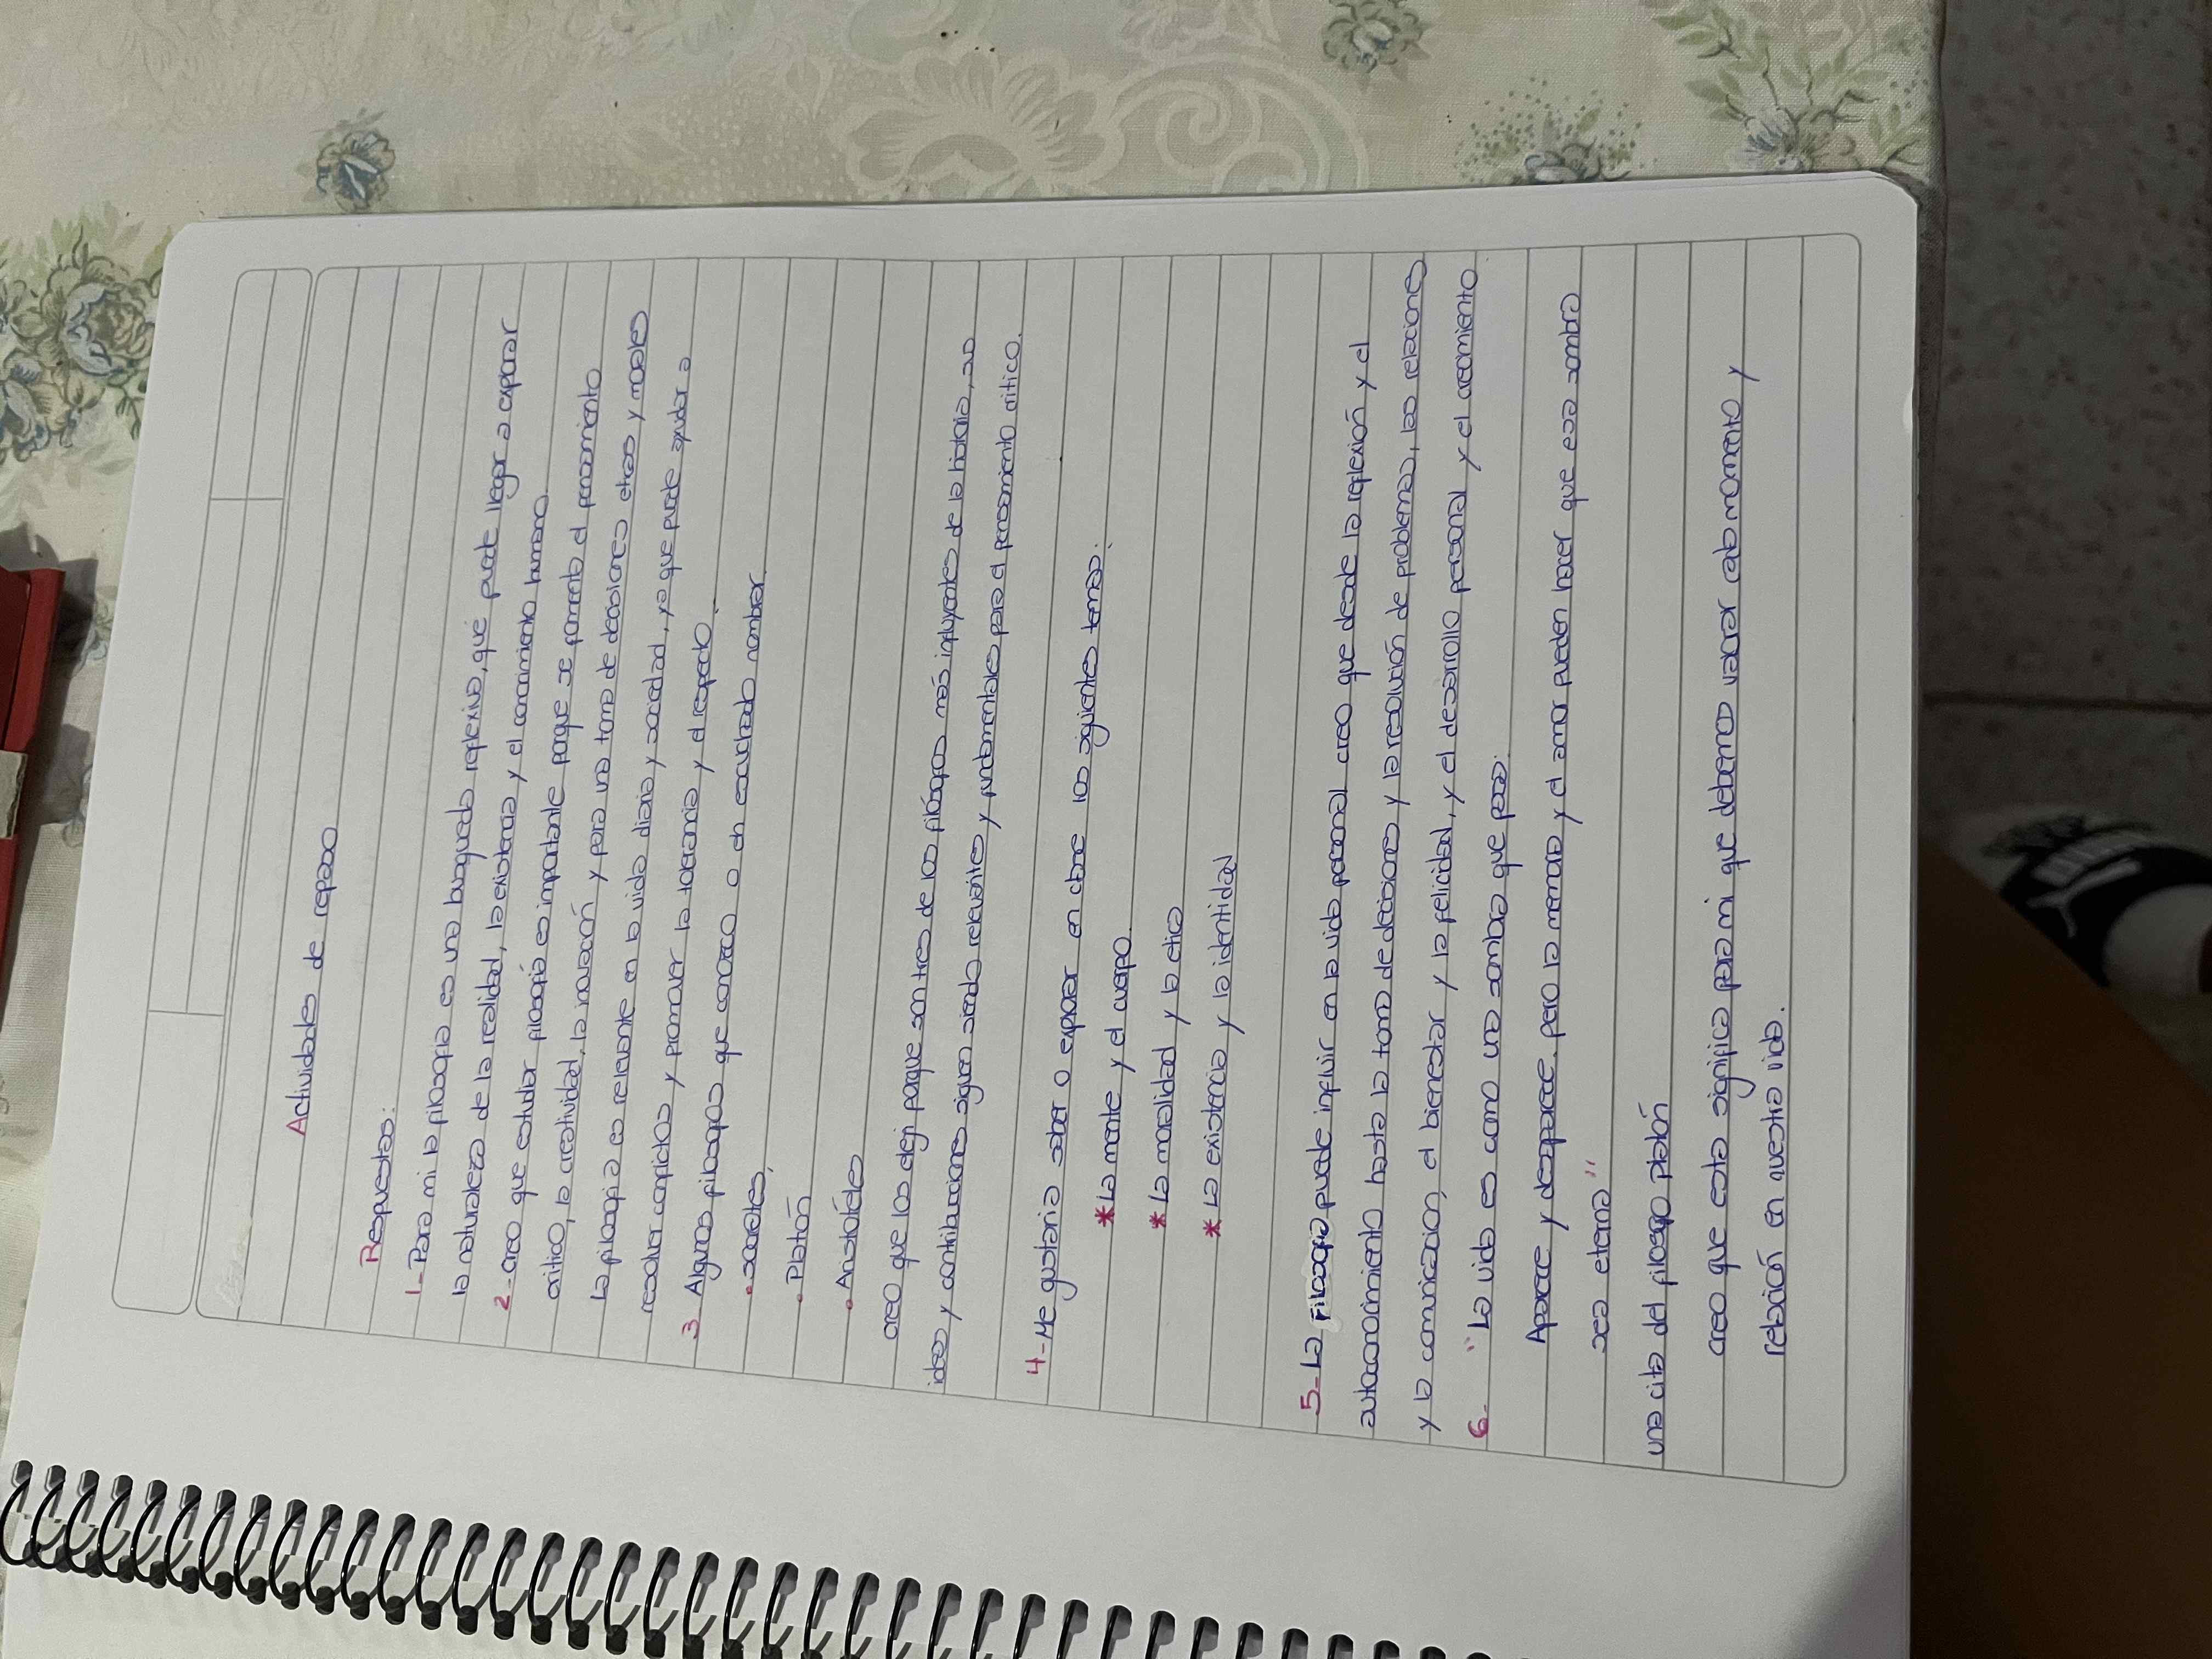 Actividades de repaso
Respuestas:
1- Para mi la filosofia es una busqueda reflexiva, qué puede llegar a explorar
la naturaleza de la realidad, la existencia y el conocimiento humano.
2- creo que estudiar filosofia es importante porque se fomenta el pensamiento
critico, la creatividad, la inovación y para en toma de decisiones eticas y morales
La filosofia es relevante en la vida diaria y sociedad, ya que puede ayudar a
resolver conflictos y promover la tolerancia y el respeto.
3 Algunos filosofos que conosco o en escuchado nombrar.
• socrates,
• Platón
• Aristóteles
creo que los elejí porque son tres de los filósofos más influyentes de la historia, sus
ideas y contribuciones siguen siendo relevantes y fundamentales para el pensamiento critico.
4- Me gustaria saber o explorar en clase los siguientes temas:
* La mente y el cuerpo.
* La moralidad y la etica
* La existencia y la identidad
5- La Filosofia puede influir en la vida personal creo que desde la reflexión y el
autoconocimiento hasta la toma de decisiones y la resolución de problemas, las relaciones
y la comunicación, el bienestar y la felicidad, y el desarrollo personal y el crecimiento
6- "La vida es como un sombra que pasa.
Aparece y desaparece, pero la memoria y el amor pueden hacer que esa sombra
sea eterna"
una cita del filosofo platón
creo que esta significa para mi que debemos valorar cada momento y
relación en nuestra vida.